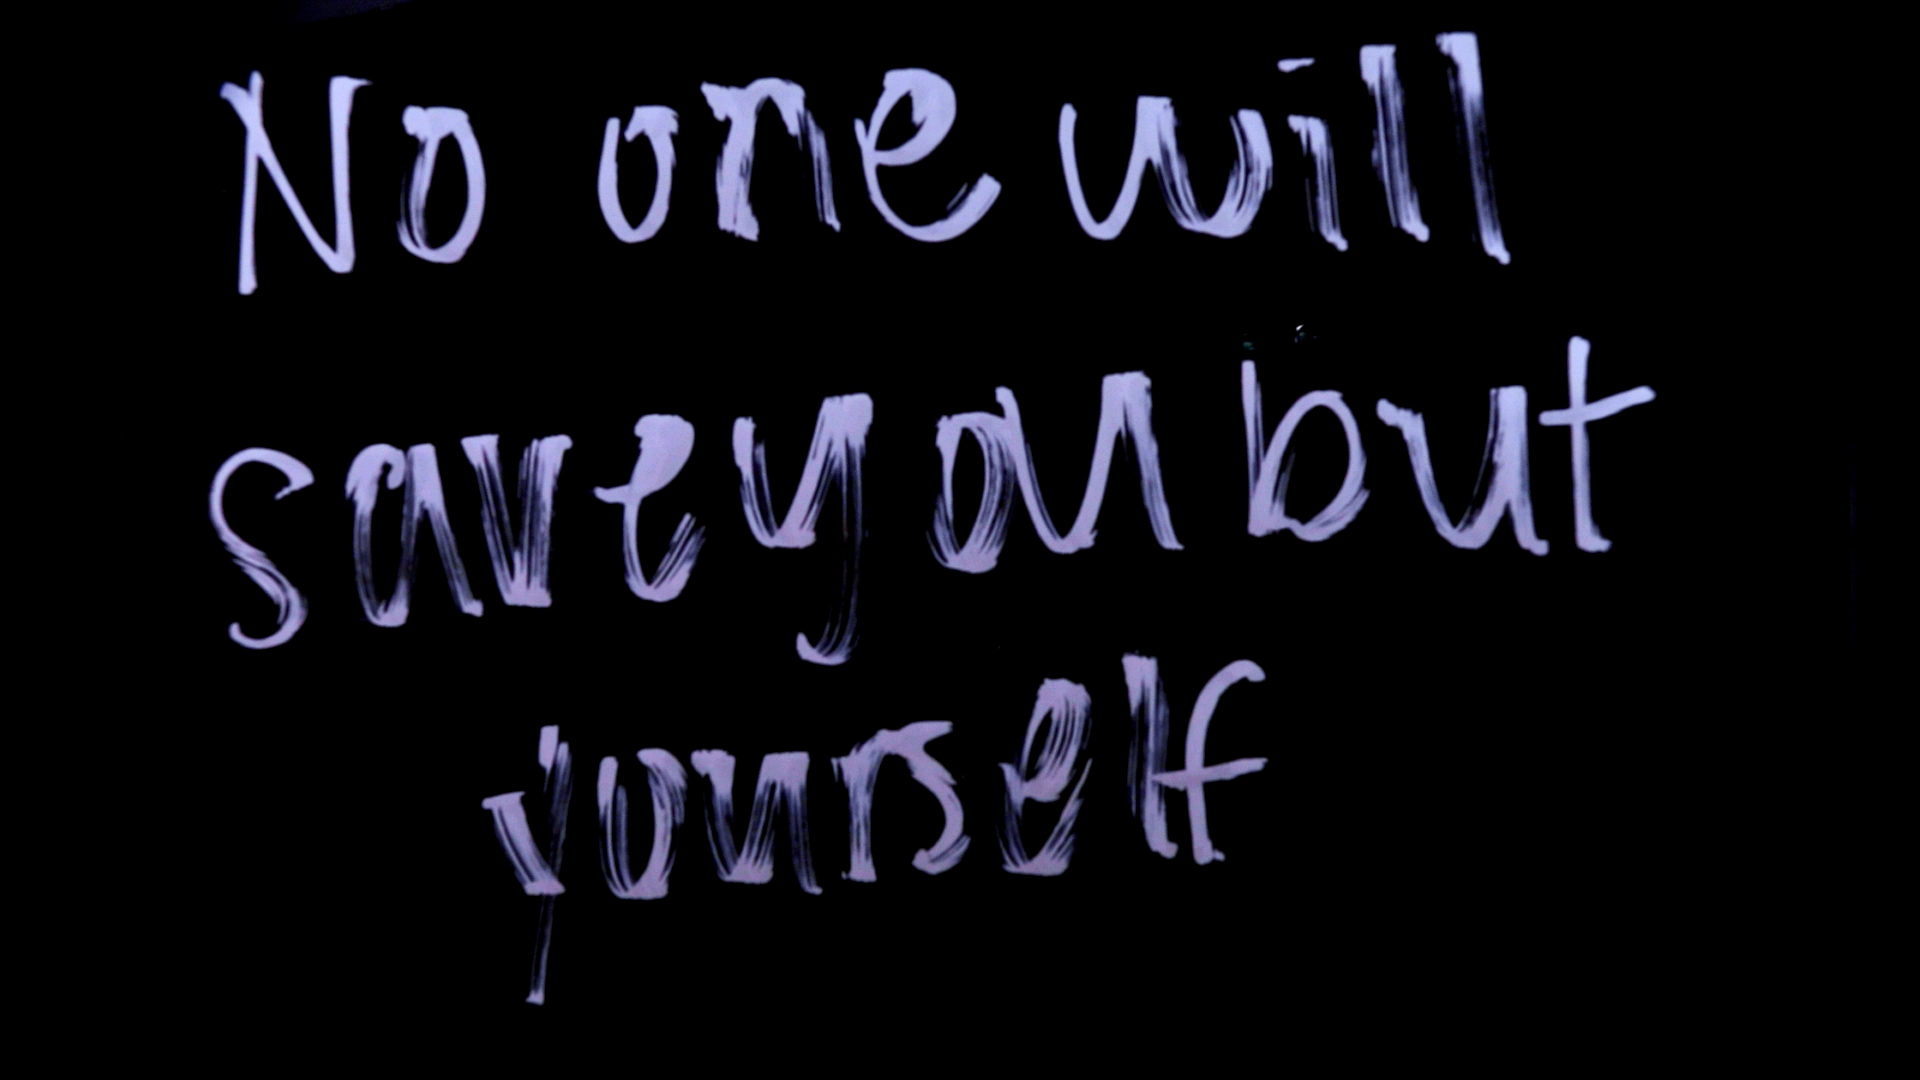 No one will
save you but
yourself